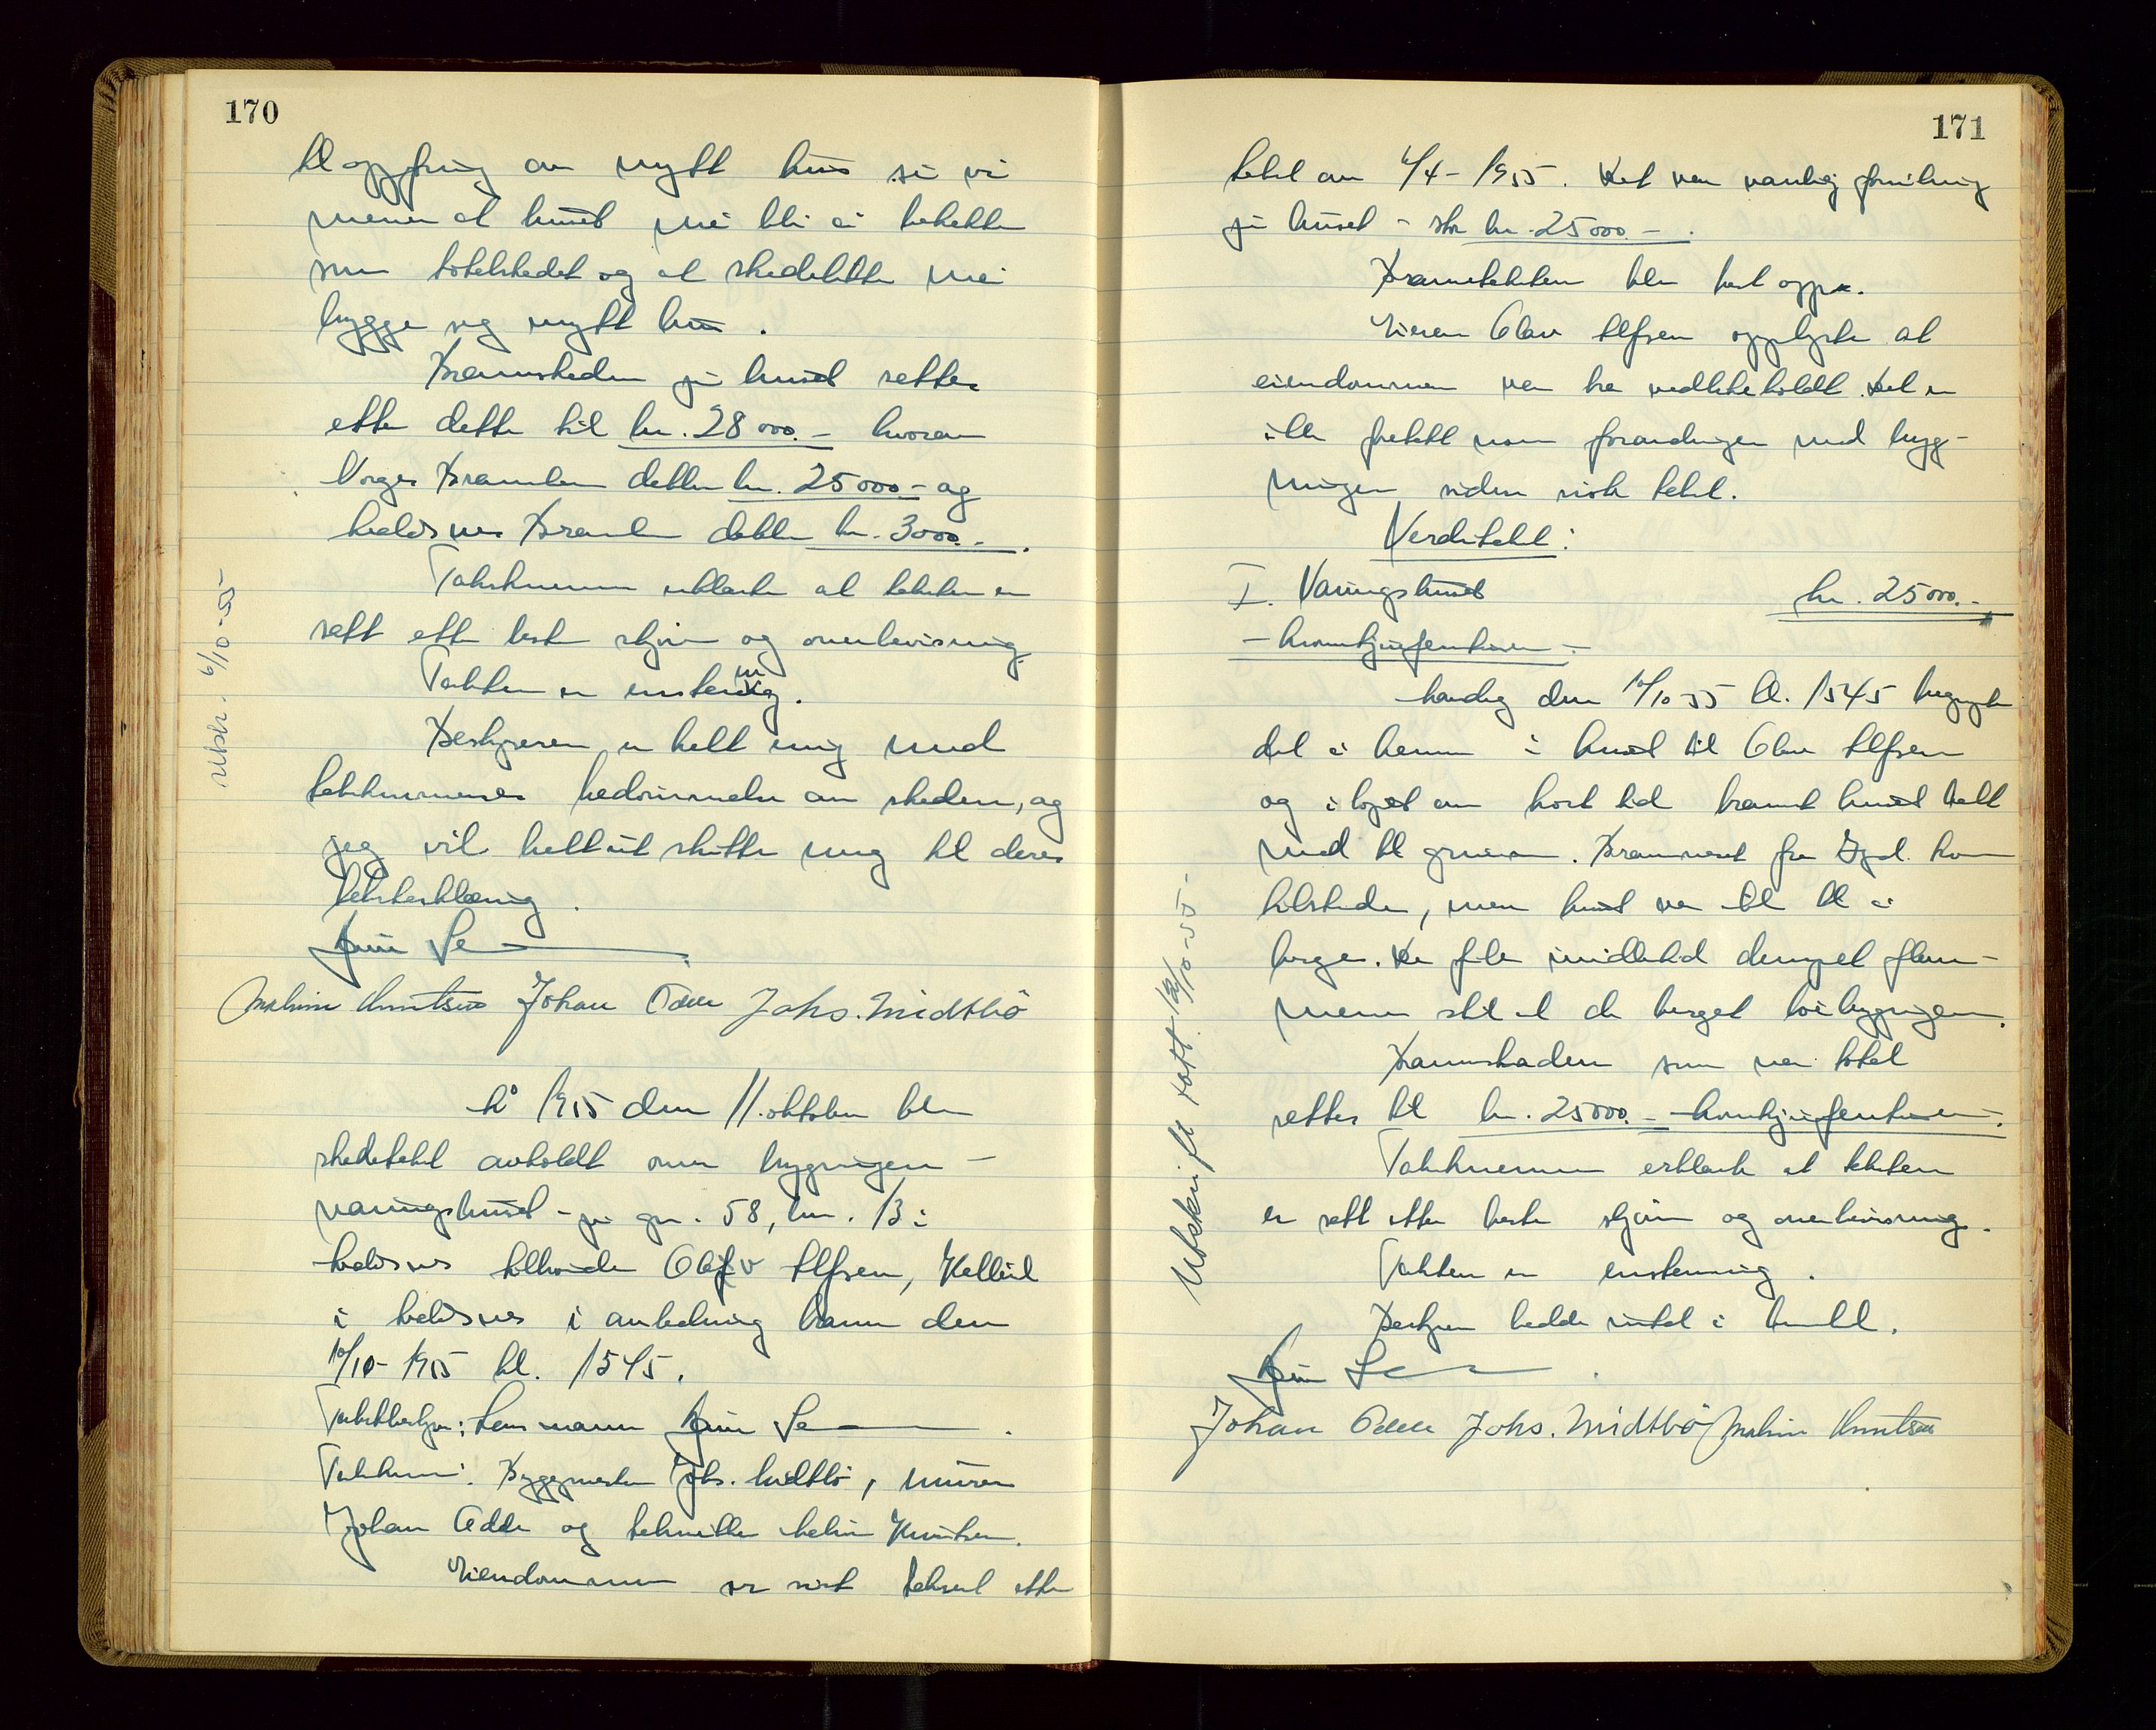 170
til oppføring av nytt hus så vi
mener at huset må bli å betrakte
som totalskadet og at skadelidte må
bygge seg nytt hus.
Brannskaden på huset settes
etter dette til kr. 28 000.- hvorav
Norges Brannkasse dekker kr. 25 000.- og
Brannkasse dekker kr. 3000.-.
Takstmennene erklærte at taksten er
satt etter beste skjønn og overbevisning.
Taksten er enstemmig.
Bestyreren er helt enig med
takstmennenes bedømmelse av skaden, og
jeg vil helt ut slutte meg til deres
taksterklæring.
Knutsen Johan Odde Johs. Midtbö
utskr. 6/10-55
År 1955 den 11. oktober ble
skadetakst avholdt over bygningen -
våningshuset - på gnr. 58, bnr. 13 i
tilhørende Olav Alfsen,
i i anledning brann den
10/10-1955 kl. 1545.
Takstbestyrer: Lensmann
Takstmenn: Byggmester Johs. Midtbö, murer
Johan Odde og Knutsen.
Eiendommen er sist taksert etter
171
takst av 4/4-1955. Det var vanlig forsikring
på huset - stor kr. 25 000.-.
Branntaksten ble lest opp.
Eieren Olav Alfsen opplyste at
eiendommen var bra vedlikeholdt. Det er
ikke foretatt noen forandringer med byg-
ningen siden siste takst.
Verditakst:
I. Våningshuset kr. 25 000.-
- kronertjuefemtusen -
Mandag den 10/10-55 kl. 1545 begynte
det å brenne i huset til Olav Alfsen
og i løpet av kort tid brant huset helt
ned til grunnen. Brannvesenet fra kom
tilstede, men huset var ikke til å
berge. De fikk imidlertid dempet flam-
mene slik at de berget bygningen.
Brannskaden som var total
settes til kr. 25 000.- - kronertjuefemtusen -.
Takstmennene erklærte at taksten
er satt etter beste skjønn og overbevisning.
Taksten er enstemmig.
Bestyreren hadde intet i
Johan Odde Johs. Midtbö Knutsen
Utskrift tatt 12/10-55-